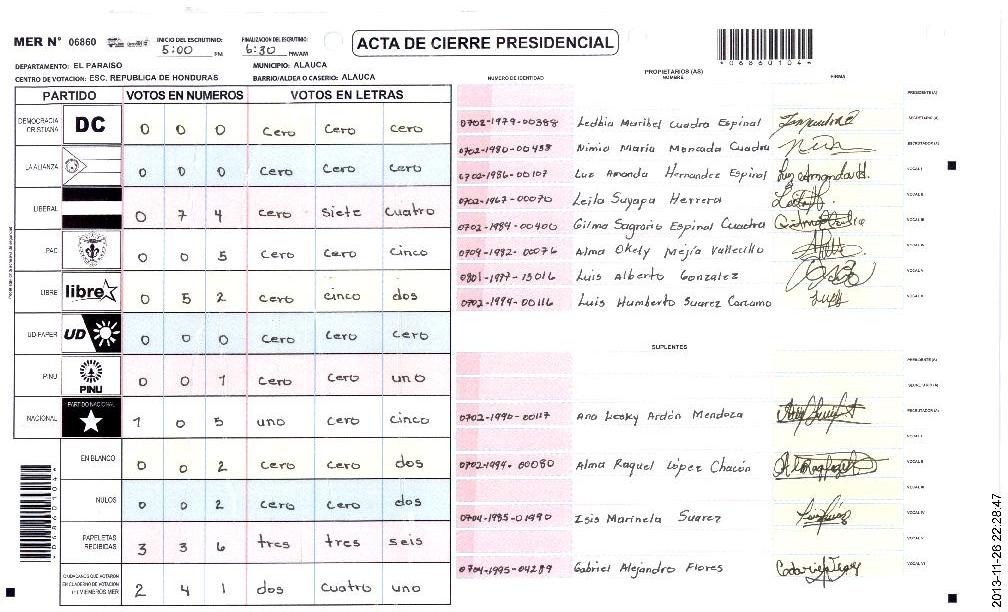 MER N° 06860
INICIO DEL ESCRUTINIO: 5:00 PM
FINALIZACION DEL ESCRUTINIO: 6:30 PM/AM
ACTA DE CIERRE PRESIDENCIAL
*06860104*
DEPARTAMENTO: EL PARAISO
MUNICIPIO: ALAUCA
CENTRO DE VOTACION: ESC. REPUBLICA DE HONDURAS
BARRIO/ALDEA O CASERIO: ALAUCA
PARTIDO VOTOS EN NUMEROS VOTOS EN LETRAS
DEMOCRACIA CRISTIANA DC 0 0 0 cero cero cero
LA ALIANZA 0 0 0 cero cero cero
LIBERAL 0 7 4 cero siete cuatro
PAC 0 0 5 cero cero cinco
LIBRE libre 0 5 2 cero cinco dos
UD/FAPER UD 0 0 0 cero cero cero
PINU PINU 0 0 1 cero cero uno
NACIONAL PARTIDO NACIONAL 1 0 5 uno cero cinco
EN BLANCO 0 0 2 cero cero dos
NULOS 0 0 2 cero cero dos
PAPELETAS RECIBIDAS 3 3 6 tres tres seis
CIUDADANOS QUE VOTARON EN CUADERNO DE VOTACION MIEMBROS MER 2 4 1 dos cuatro uno
NUMERO DE IDENTIDAD PROPIETARIOS (AS) NOMBRE FIRMA
PRESIDENTE (A)
0702-1979-00388 Ledbia Maribel Cuadra Espinal SECRETARIO (A)
0702-1980-00458 Nimia Maria Moncada Cuadra ESCRUTADOR (A)
0702-1986-00107 Luz Amanda Hernandez Espinal VOCAL I
0702-1967-00070 Leila Suyapa Herrera VOCAL II
0702-1984-00400 Gilma Sagrario Espinal Cuadra VOCAL III
0709-1982-00076 Alma Okely Mejía Vallecillo VOCAL IV
0801-1977-13016 Luis Alberto Gonzalez VOCAL V
0702-1984-00116 Luis Humberto Suarez Carcamo
SUPLENTES
PRESIDENTE (A)
SECRETARIO (A)
0702-1990-00117 Ana Lesky Ardón Mendoza ESCRUTADOR (A)
VOCAL I
0702-1994-00080 Alma Raquel López Chacón VOCAL II
VOCAL III
0704-1985-01490 Isis Marinela Suarez VOCAL IV
VOCAL V
0704-1995-04289 Gabriel Alejandro Flores VOCAL VI
*06860104*
2013-11-26 22:28:47